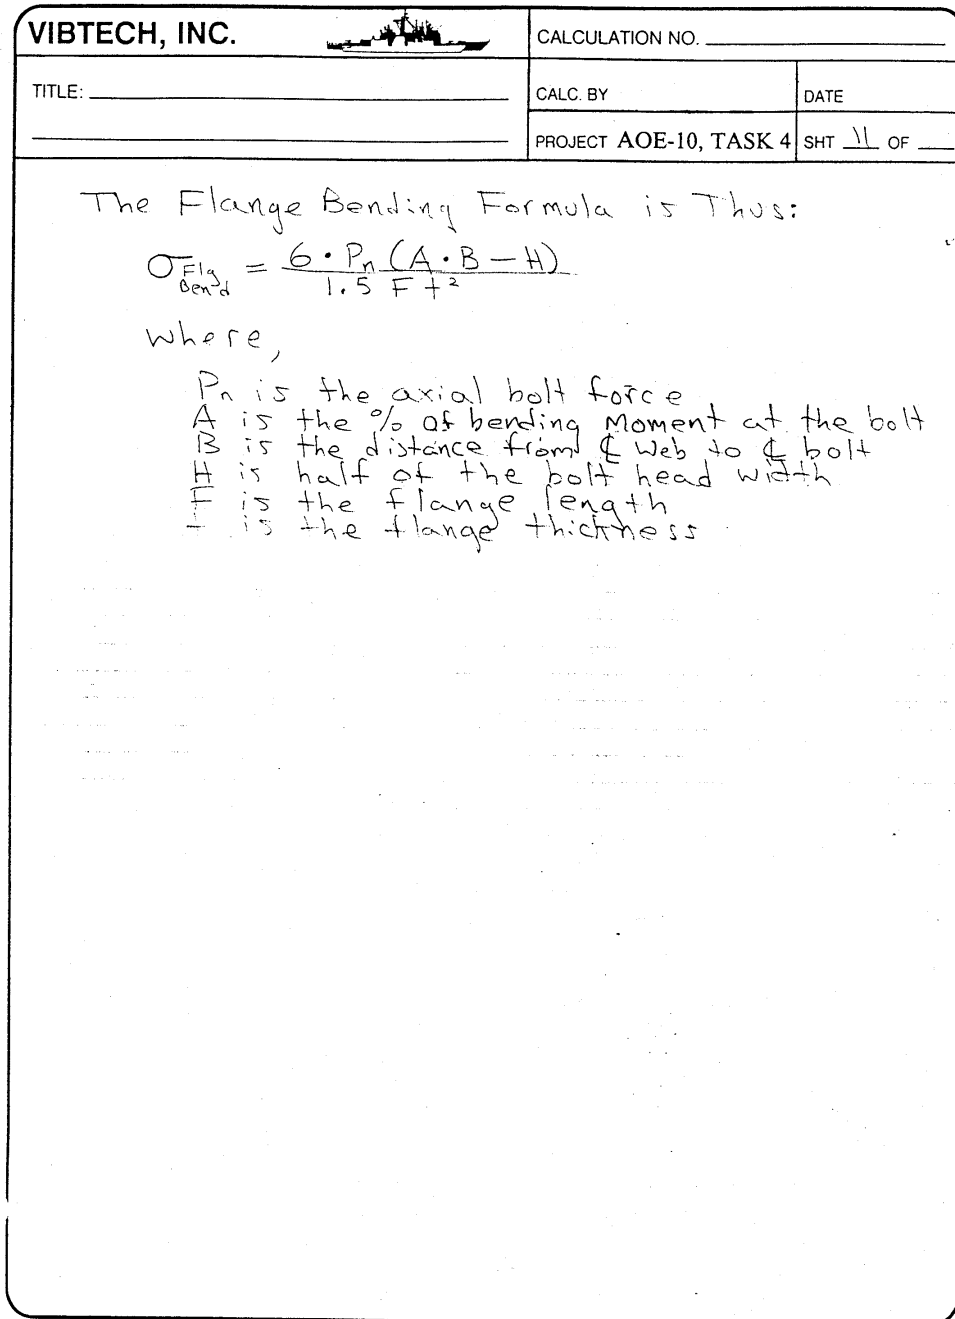 VIBTECH, INC.
CALCULATION NO.
TITLE:
CALC. BY
DATE
PROJECT AOE-10, TASK 4
SHT 11 OF
The Flange Bending Formula is Thus:
σ Flg Bend = 6 · Pn (A · B – H) / 1.5 F t²
where,
Pn is the axial bolt force
A is the % of bending Moment at the bolt
B is the distance from ℄ Web to ℄ bolt
H is half of the bolt head width
F is the flange length
t is the flange thickness